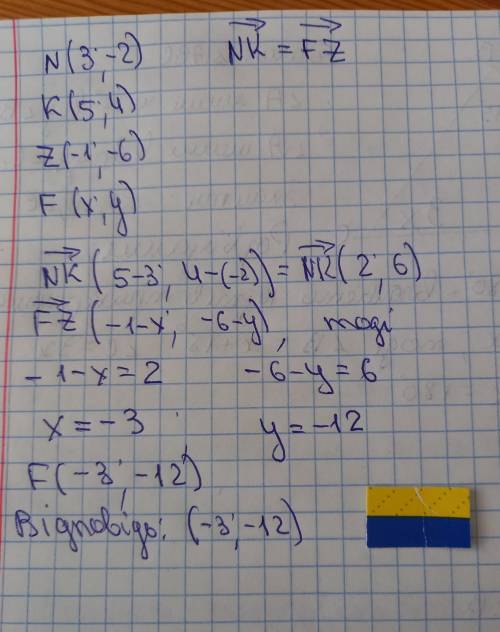 N(3; -2) \overrightarrow{NK} = \overrightarrow{FZ}
K(5; 4)
Z(-1; -6)
F(x; y)
\overrightarrow{NK}(5-3; 4-(-2)) = \overrightarrow{NK}(2; 6)
\overrightarrow{FZ}(-1-x; -6-y), тоді
-1-x=2 -6-y=6
x=-3 y=-12
F(-3; -12)
Відповідь: (-3; -12)